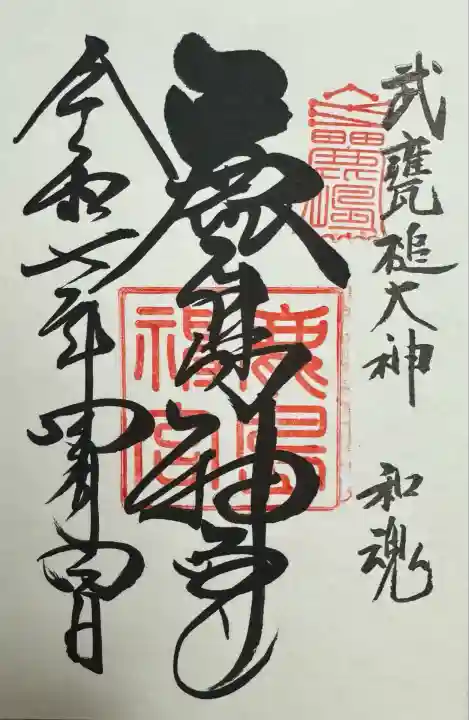 武甕槌大神 和魂
鹿島神宮
鹿島
神宮
令和七年